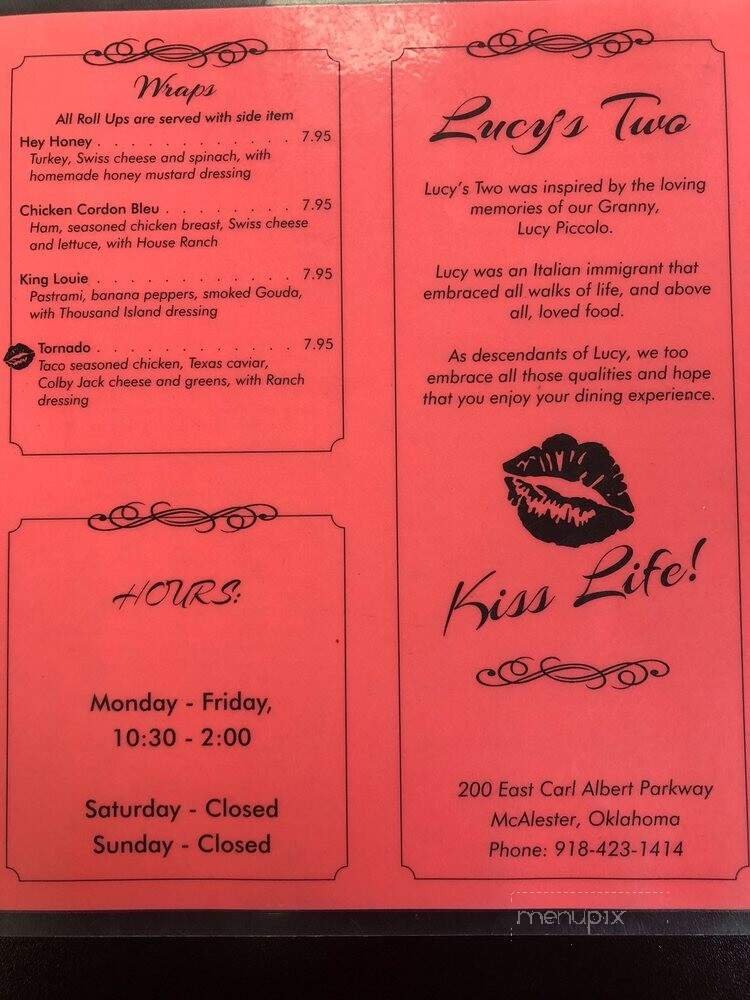 Wraps
All Roll Ups are served with side item
Hey Honey . . . . . . . . . . . . 7.95
Turkey, Swiss cheese and spinach, with
homemade honey mustard dressing
Chicken Cordon Bleu . . . . . . . . 7.95
Ham, seasoned chicken breast, Swiss cheese
and lettuce, with House Ranch
King Louie . . . . . . . . . . . . 7.95
Pastrami, banana peppers, smoked Gouda,
with Thousand Island dressing
Tornado . . . . . . . . . . . . 7.95
Taco seasoned chicken, Texas caviar,
Colby Jack cheese and greens, with Ranch
dressing
HOURS:
Monday - Friday,
10:30 - 2:00
Saturday - Closed
Sunday - Closed
Lucy's Two
Lucy's Two was inspired by the loving
memories of our Granny,
Lucy Piccolo.
Lucy was an Italian immigrant that
embraced all walks of life, and above
all, loved food.
As descendants of Lucy, we too
embrace all those qualities and hope
that you enjoy your dining experience.
Kiss Life!
200 East Carl Albert Parkway
McAlester, Oklahoma
Phone: 918-423-1414
menupix